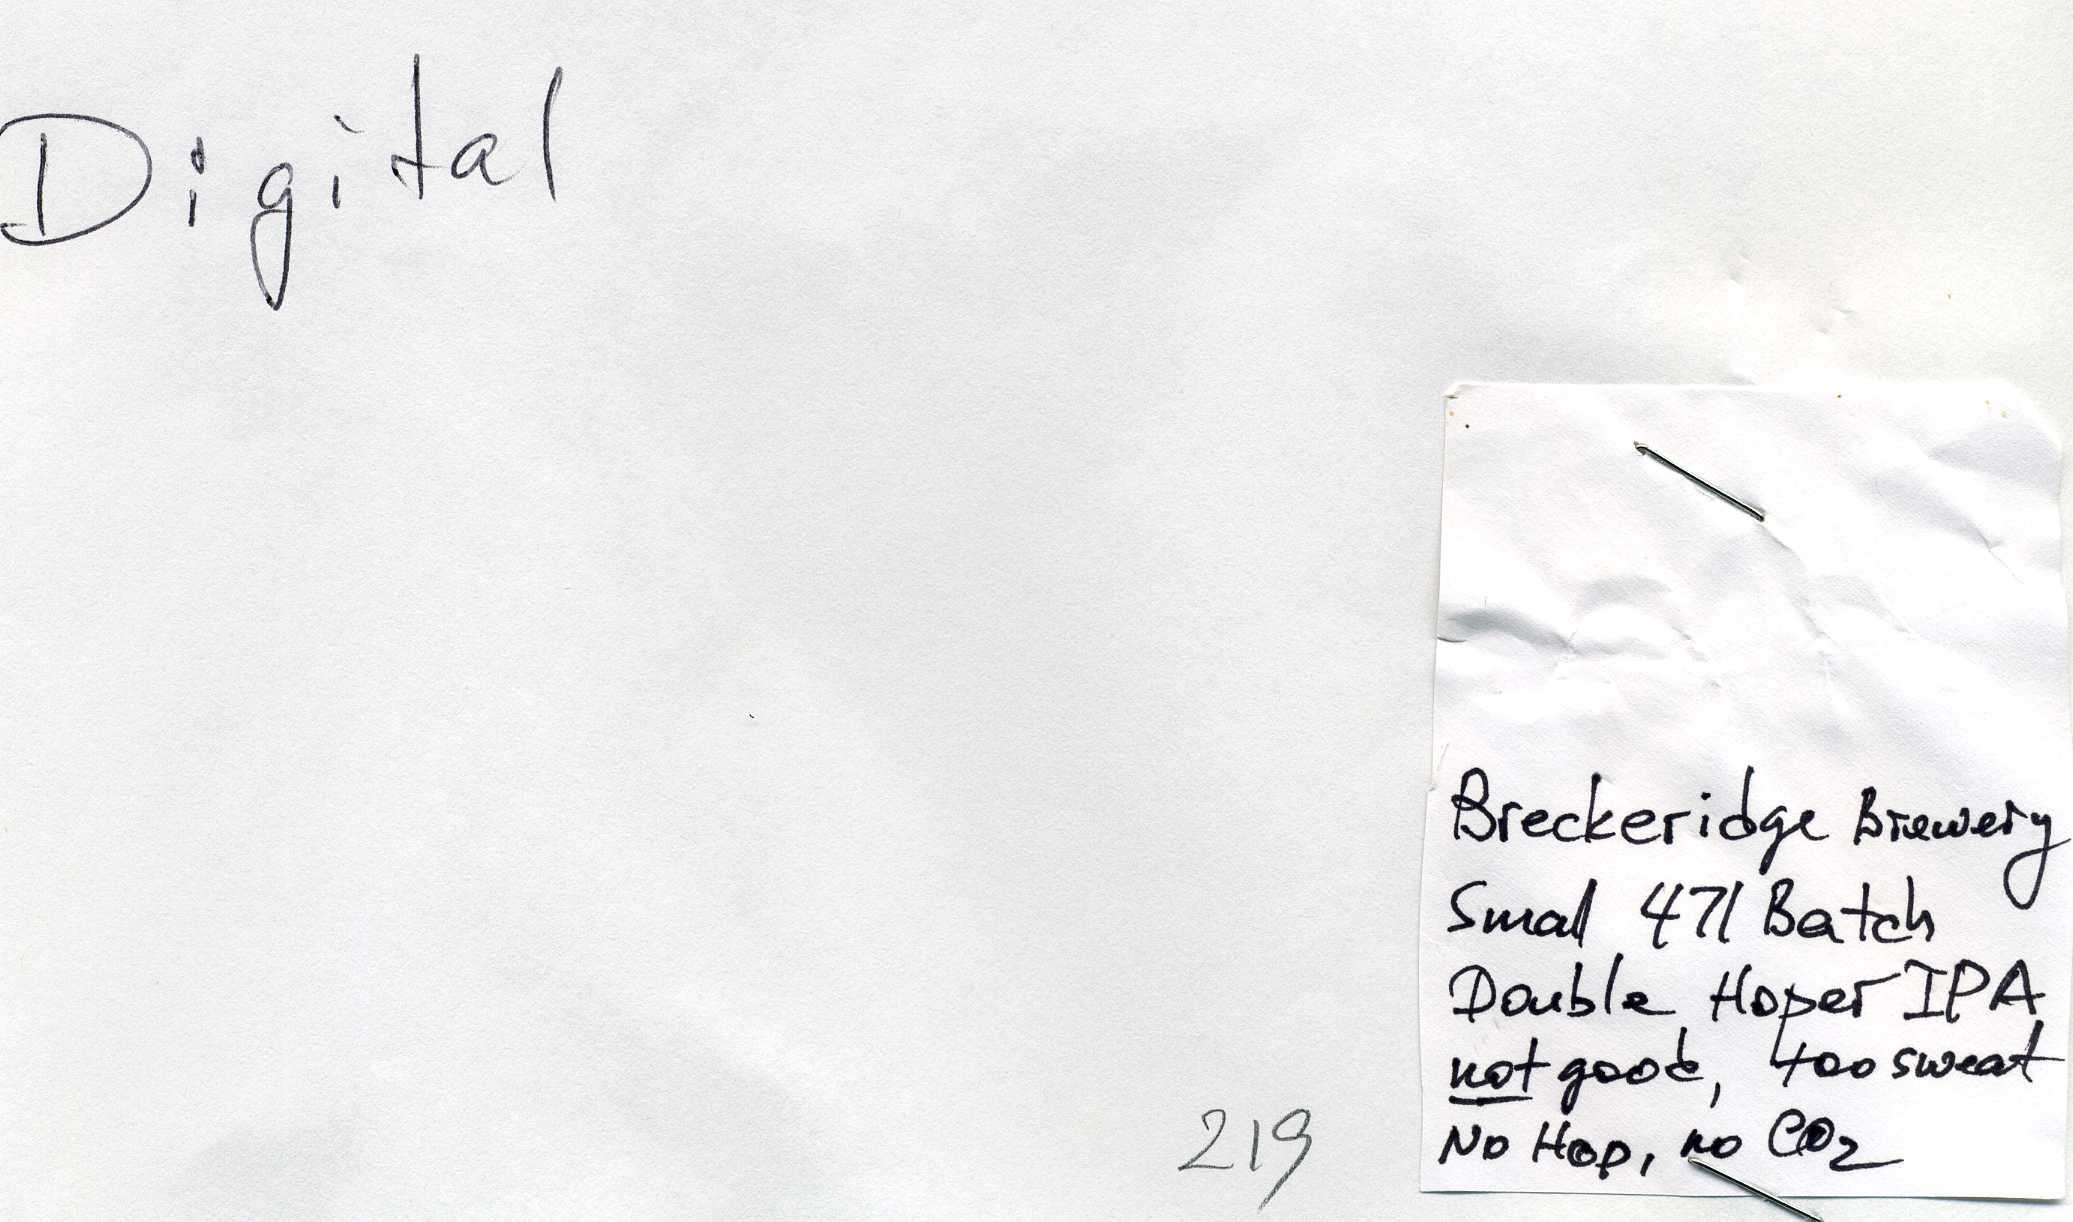 Digital
Breckeridge Brewery
Smal 471 Batch
Double Hoper IPA
not good, too sweat
No Hop, no CO2
219